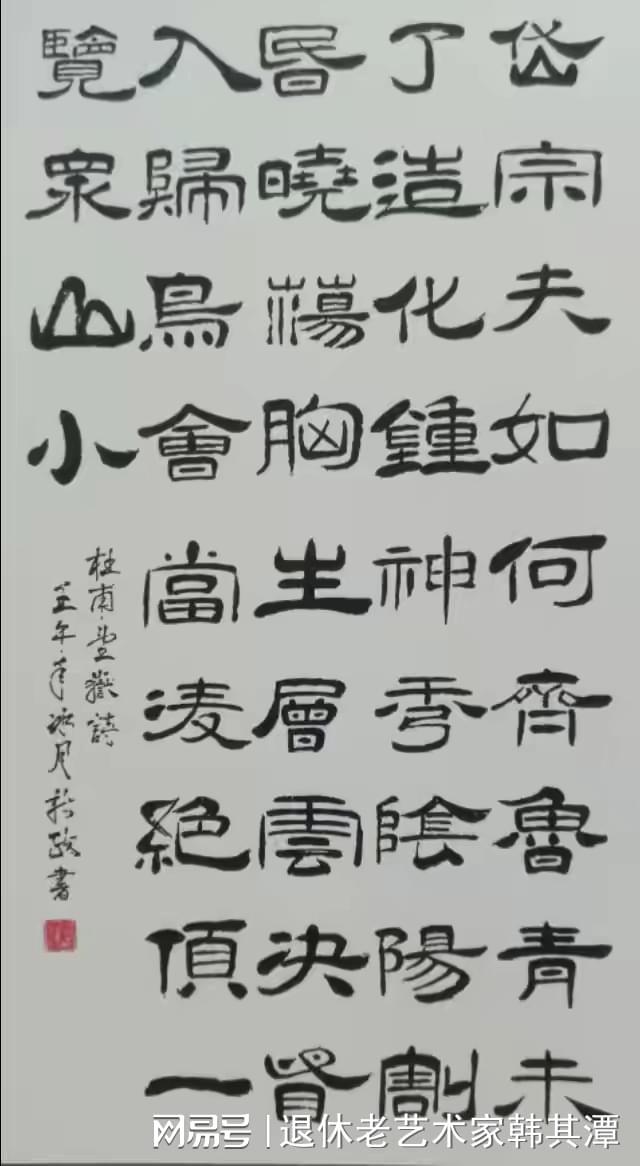 岱宗夫如何齊魯青未
了造化鍾神秀陰陽割
昬曉蕩胸生層雲決眥
入歸鳥會當凌絕頂一
覽眾山小
杜甫望嶽詩
午年月書
网易号 | 退休老艺术家韩其潭